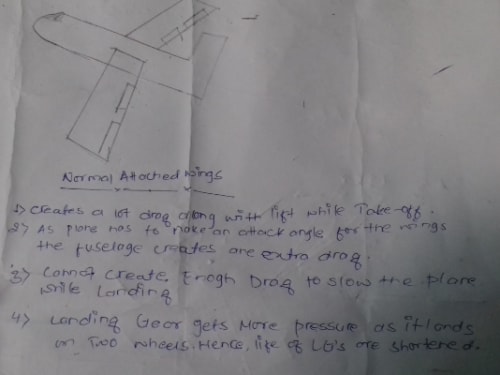 Normal Attached wings
1) Creates a lot drag along with lift while Take-off.
2) As plane has to make an attack angle for the wings
the fuselage creates are extra drag.
3) Cannot create Enogh Drag to slow the plane
while Landing
4) Landing Gear gets More pressure as it lands
on Two wheels. Hence, life of LG's are shortened.